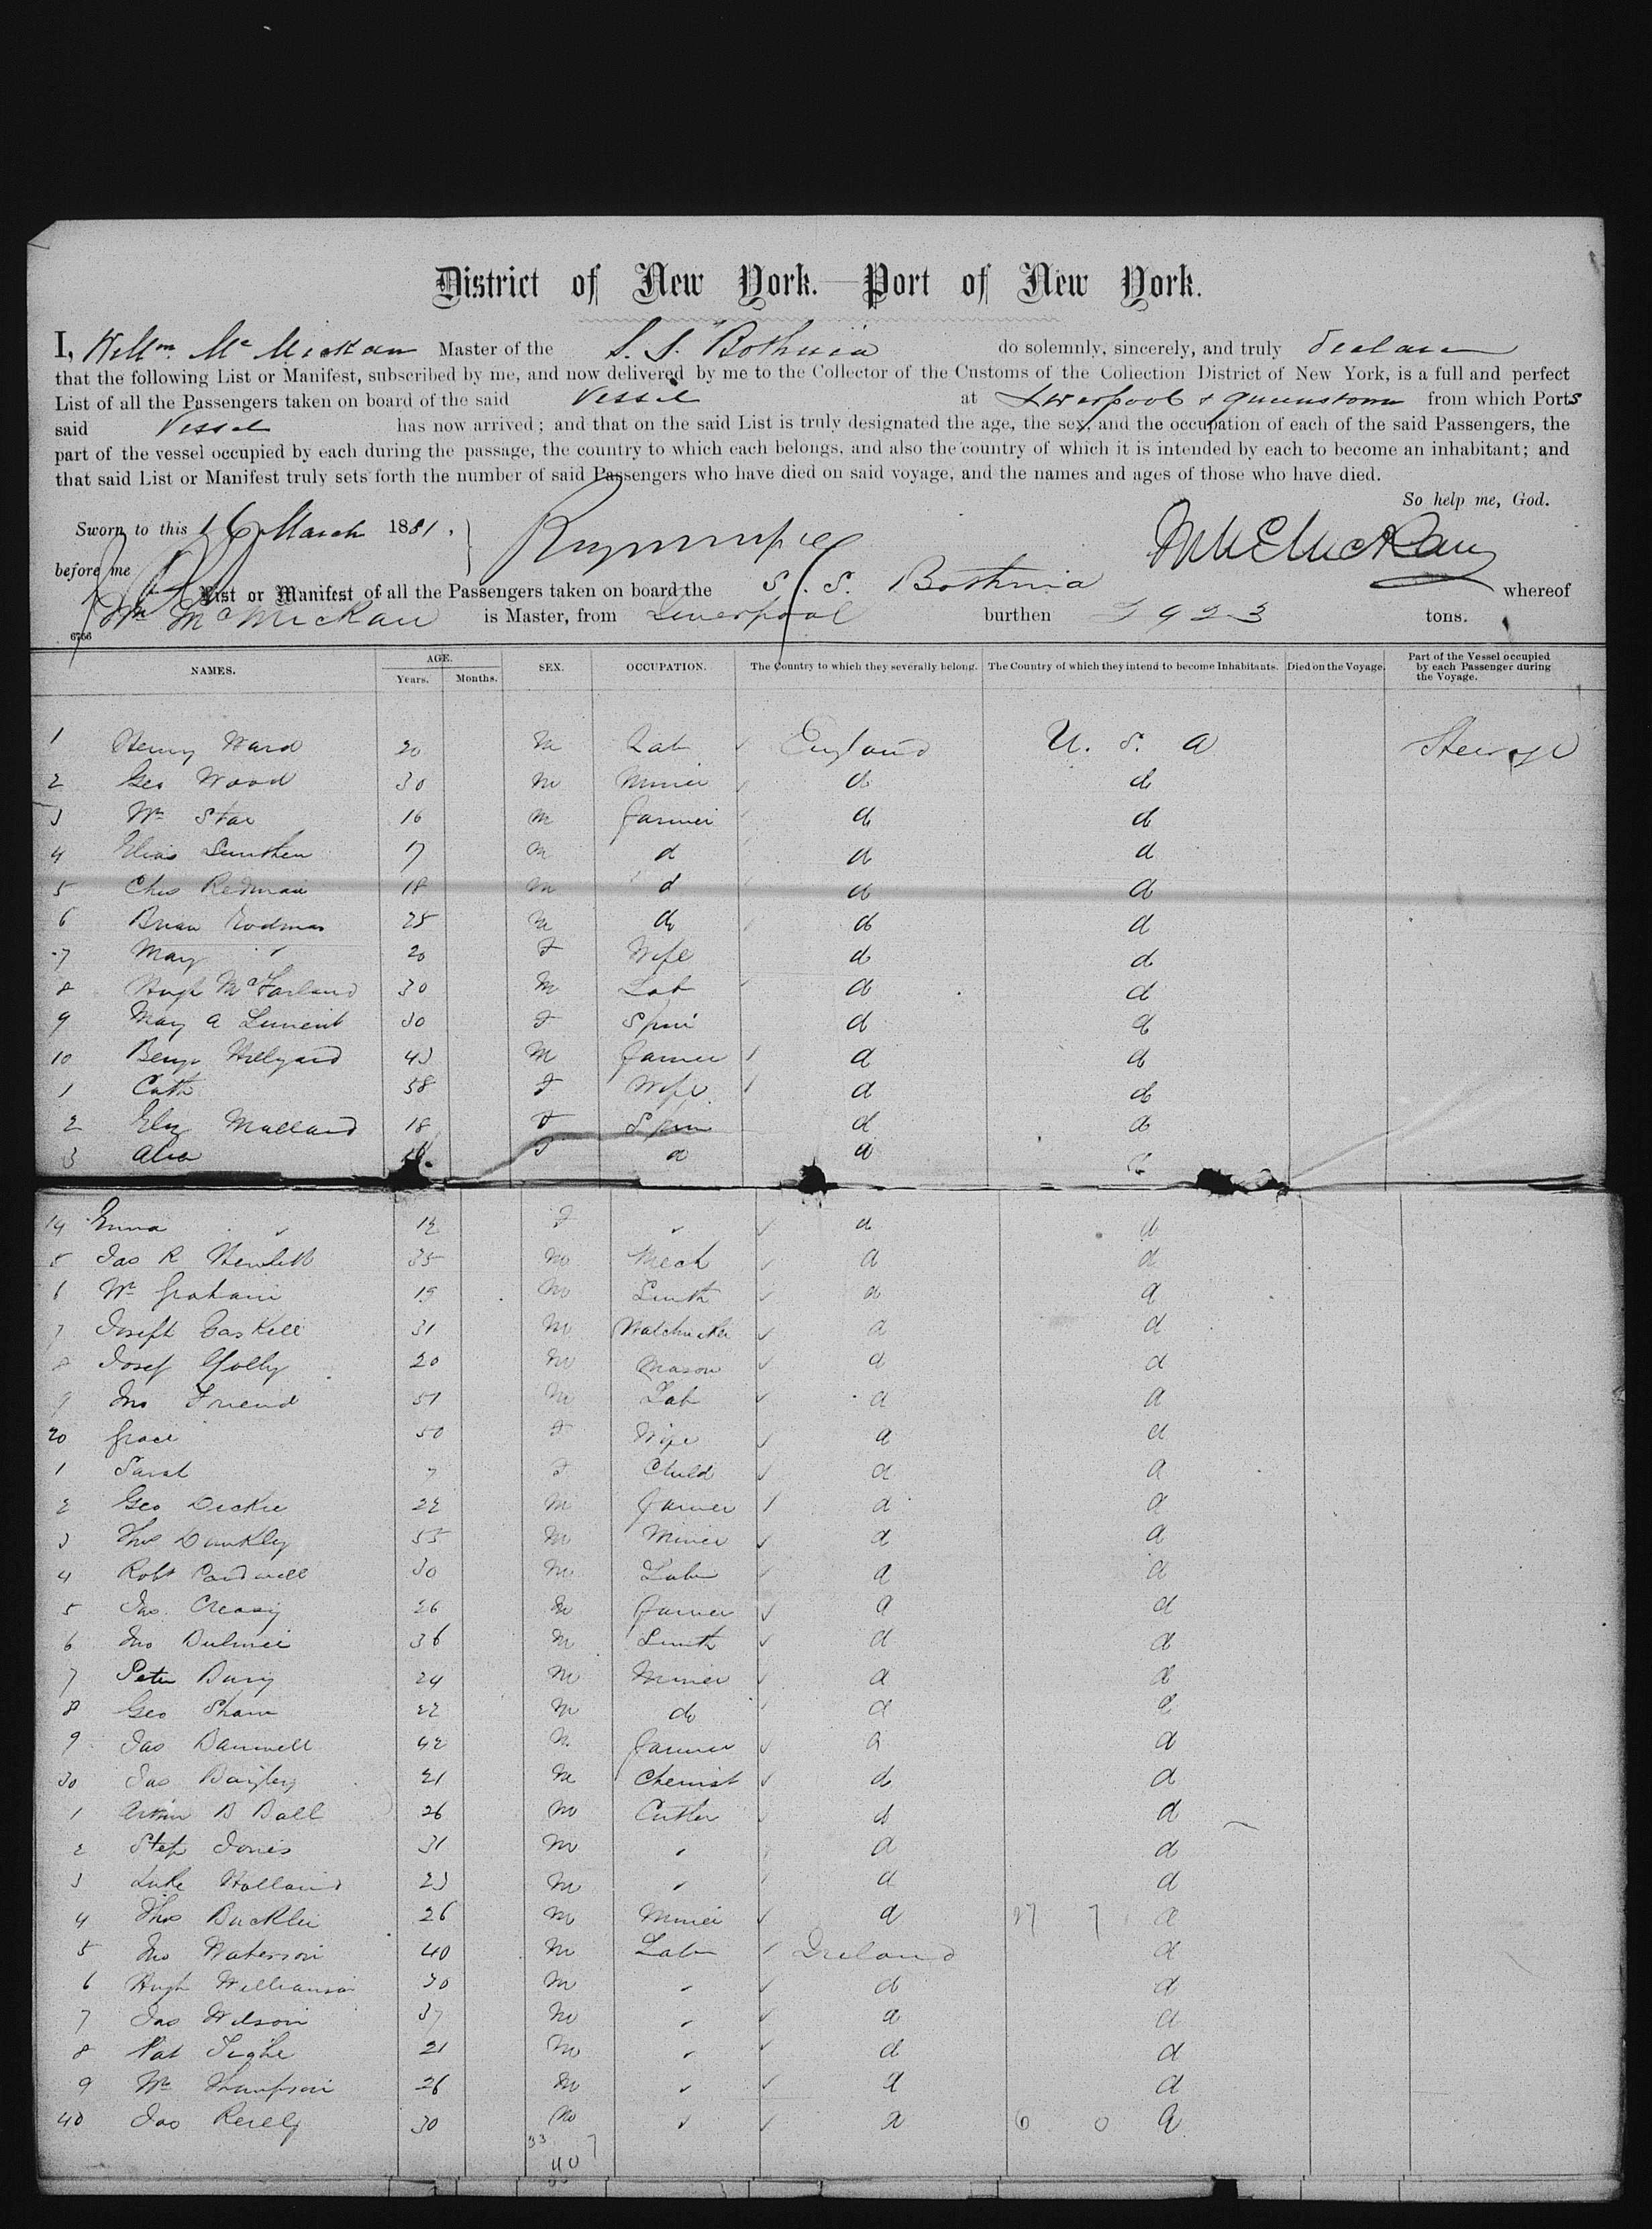 District of New York. Port of New York.
I, Willm. Mc Mickan Master of the S. S. "Bothnia do solemnly, sincerely, and truly declare
that the following List or Manifest, subscribed by me, and now delivered by me to the Collector of the Customs of the Collection District of New York, is a full and perfect
List of all the Passengers taken on board of the said Vessel at Liverpool + Queenstown from which Ports
said Vessel has now arrived; and that on the said List is truly designated the age, the sex, and the occupation of each of the said Passengers, the
part of the vessel occupied by each during the passage, the country to which each belongs, and also the country of which it is intended by each to become an inhabitant; and
that said List or Manifest truly sets forth the number of said Passengers who have died on said voyage, and the names and ages of those who have died.
So help me, God.
Sworn to this 16 March 1881.
before me
List or Manifest of all the Passengers taken on board the S. S. Bothnia whereof
Wm McMickan is Master, from Liverpool burthen 2923 tons.
6766
NAMES. AGE. Years. Months. SEX. OCCUPATION. The Country to which they severally belong. The Country of which they intend to become Inhabitants. Died on the Voyage. Part of the Vessel occupied by each Passenger during the Voyage.
1 Henry Ward 20 M Lab England U. S. A Steerage
2 Geo Wood 30 M Miner do do
3 Wm Star 16 M Farmer do do
4 Elias 17 M d do d
5 Chas Redman 18 M d do d
6 Brian 25 M do do d
7 May " 20 F Wife d d
8 Hugh McFarland 30 M Lab d d
9 May A 30 F Spin d d
10 Benj Hillyard 43 M Farmer d do
1 Cath 58 F Wife d do
2 Eliz Mallard 18 F Spin d d
3 Alice F d d
14 Emma " 12 F " d d
5 Jas R 35 M Mech d d
6 Wm Graham 19 M Smith d d
7 Joseph Caskell 31 M Watchmaker d d
8 Josef 20 M Mason d d
9 Jno Friend 51 M Lab d d
20 Grace 50 F Wife d d
1 Sarah 7 F Child d d
2 Geo Dickie 22 M Farmer d d
3 Thos Dunkley 55 M Miner d d
4 Robt Cardwell 30 M Labr d d
5 Jas. Creasy 26 M Farmer d d
6 Jno Bulmer 36 M Smith d d
7 Peter Bury 24 M Miner d d
8 Geo Shaw 22 M do d d
9 Jas 42 M Farmer d d
30 Jas Bayley 21 M Chemist do d
1 B Ball 26 M Cutler do d
2 Step Jones 31 M " d d
3 Luke Holland 23 M " d d
4 Thos Buckler 26 M Miner d 27 7 d
5 Jno Waterson 40 M Labr Ireland d
6 Hugh Williamson 30 M " d d
7 Jas Wilson 37 M " d d
8 Pat Tighe 21 M " d d
9 Wm Thompson 26 M " d d
40 Jas Reielly 30 M " d 6 0 d
33 7
40